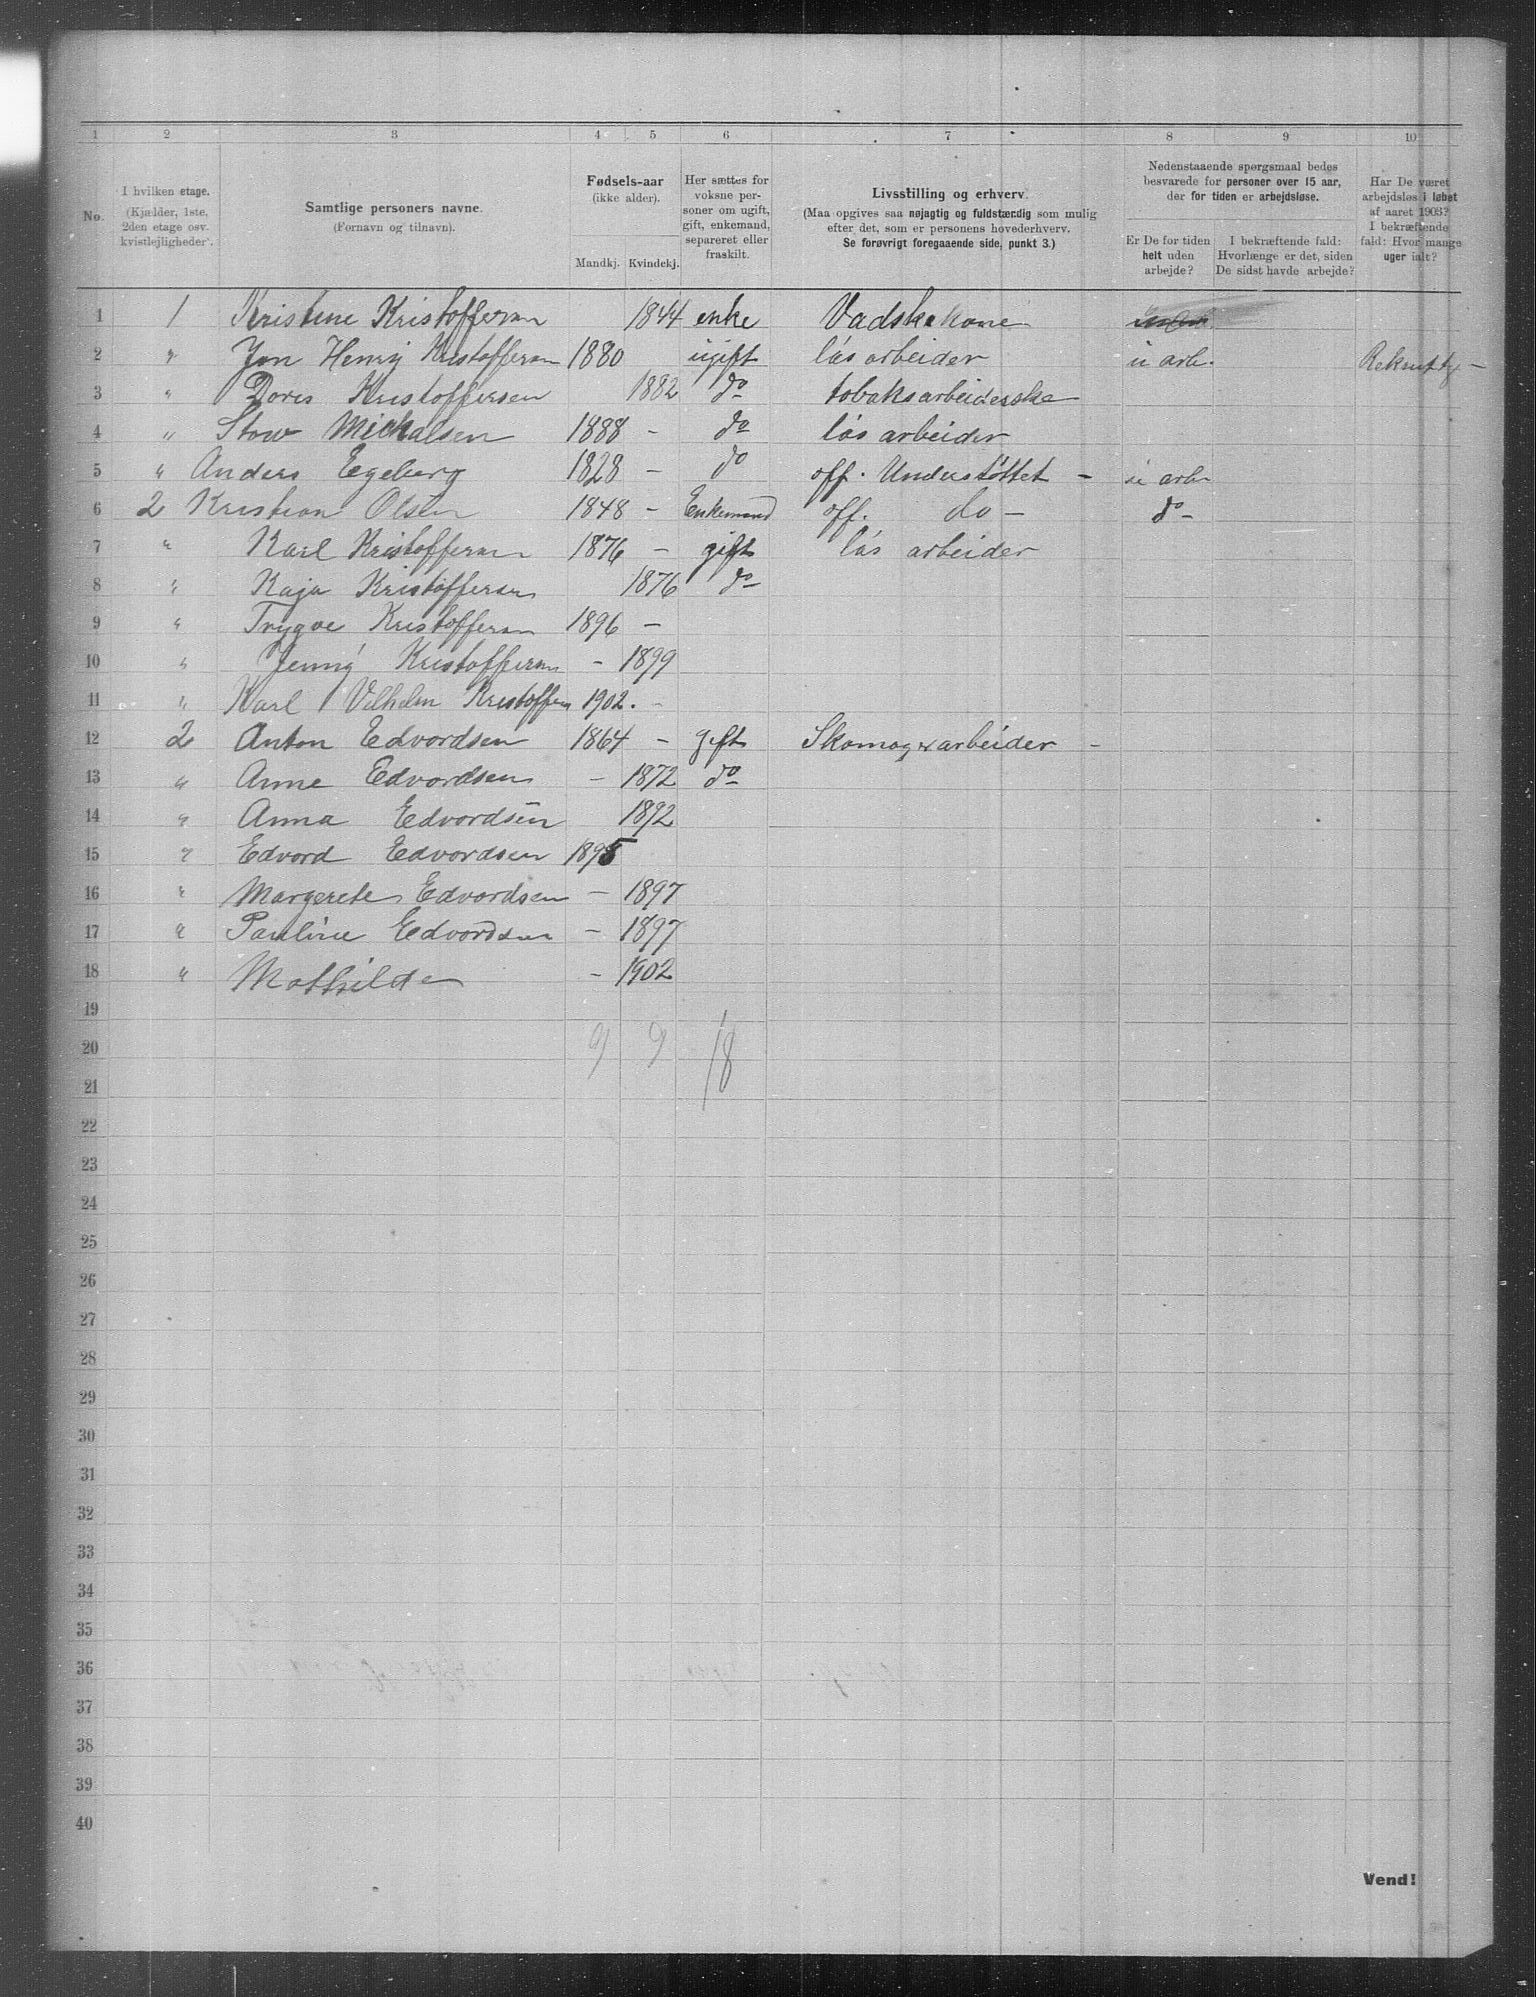 1 2 3 4 5 6 7 8 9 10
No.
I hvilken etage.
(Kjælder, 1ste, 2den etage osv. kvistlejligheder).
Samtlige personers navne.
(Fornavn og tilnavn).
Fødsels-aar
(ikke alder).
Mandkj. Kvindekj.
Her sættes for voksne personer om ugift, gift, enkemand, separeret eller fraskilt.
Livsstilling og erhverv.
(Maa opgives saa nøjagtig og fuldstændig som mulig efter det, som er personens hovederhverv.
Se forøvrigt foregaaende side, punkt 3.)
Nedenstaaende spørgsmaal bedes besvarede for personer over 15 aar, der for tiden er arbejdsløse.
Er De for tiden helt uden arbejde?
I bekræftende fald: Hvorlænge er det, siden De sidst havde arbejde?
Har De været arbejdsløs i løbet af aaret 1903? I bekræftende fald: Hvor mange uger ialt?
1 1 Kristine Kristoffersen 1844 enke Vadskekone
2 " Jon Henrij Kristoffersen 1880 ugift løs arbeider u arb.
3 " Dores Kristoffersen 1882 do tobaksarbeiderske
4 " Stow Mickalsen 1888 - do løs arbeider
5 " Anders Egeberg 1828 - do off. Understøttet - u arb
6 2 Kristian Olsen 1848 - Enkemand off. do - do
7 " Karl Kristoffersen 1876 - gift løs arbeider
8 " Kaja Kristoffersen 1876 do
9 " Trygve Kristoffersen 1896 -
10 " Jenny Kristoffersen - 1899
11 " Karl Vilhelm Kristoffersen 1902. -
12 2 Anton Edvordsen 1864 - gift Skomagerarbeider -
13 " Anne Edvordsen - 1872 do
14 " Anna Edvordsen 1892
15 " Edvord Edvordsen 1895
16 " Margerete Edvordsen - 1897
17 " Pauline Edvordsen - 1897
18 " Mathilde - 1902
19
20 9 9 18
21
22
23
24
25
26
27
28
29
30
31
32
33
34
35
36
37
38
39
40
Vend!